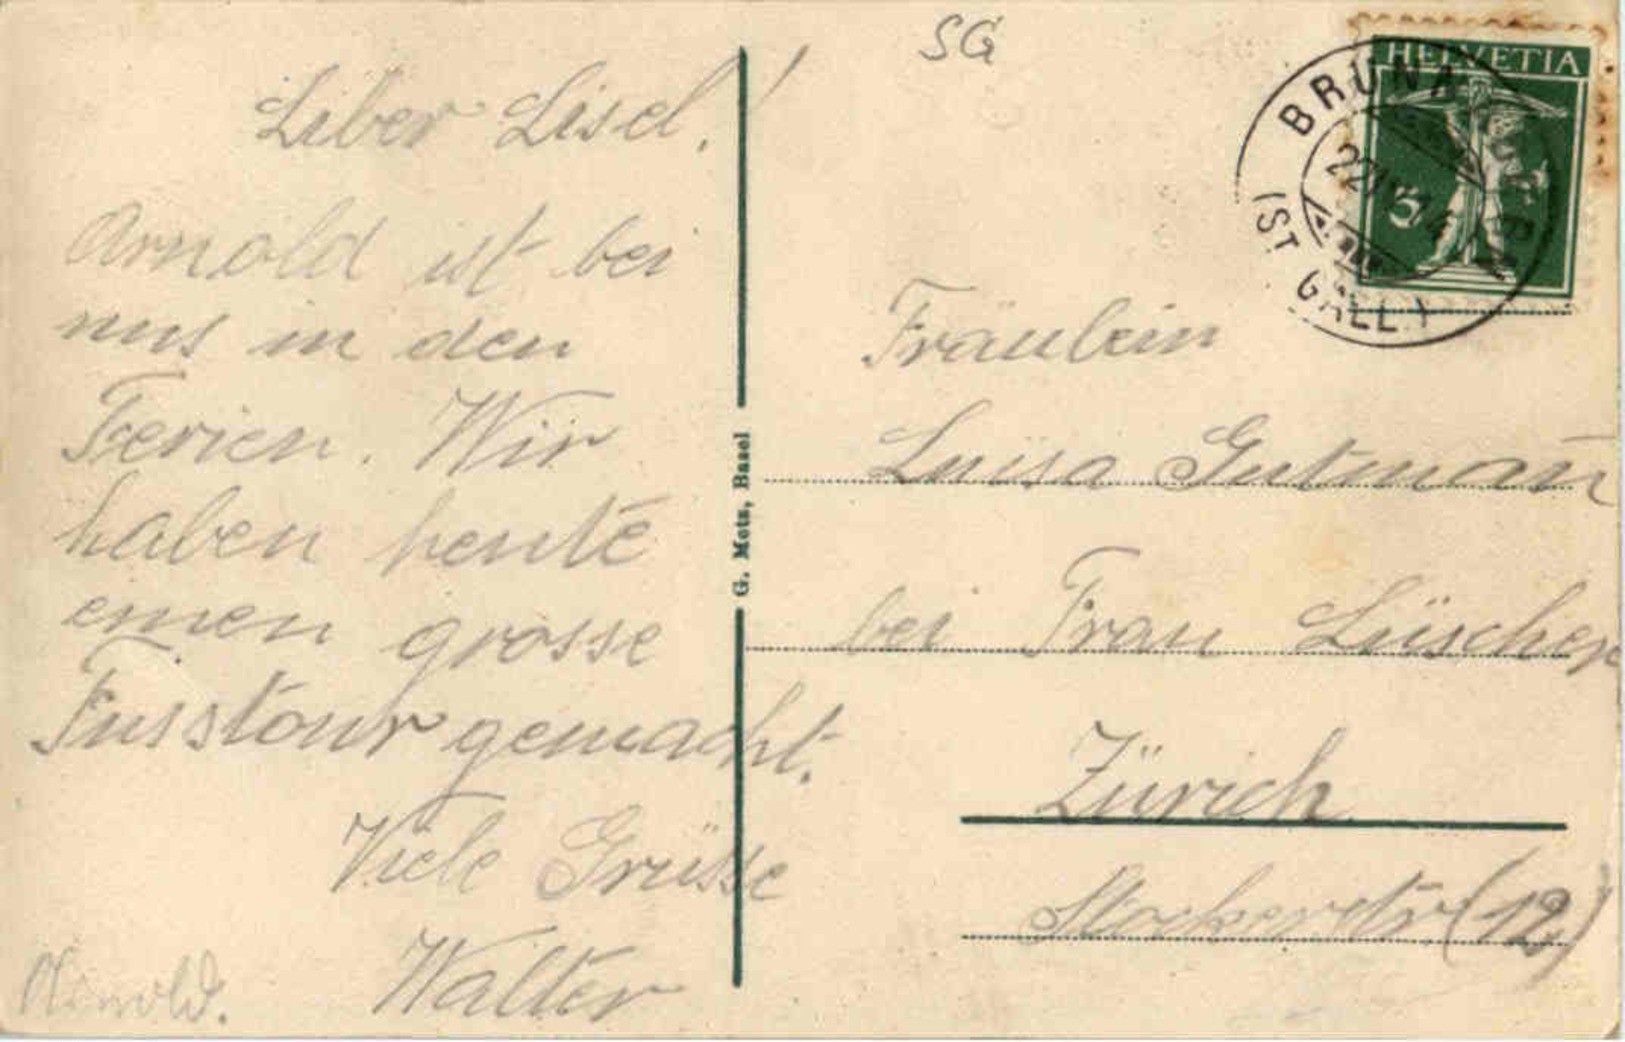 SG
HELVETIA
5
BRUNNADERN
(ST. GALL.)
Liber Lisel!
Arnold ist bei
uns in den
Ferien. Wir
haben heute
einen grosse
Fusstour gemacht.
Viele Grüsse
Walter
Arnold.
G. Metz, Basel
Fräulein
Luisa Gutman̄
bei Frau Lüscher
Zürich
Stockerstr (12)